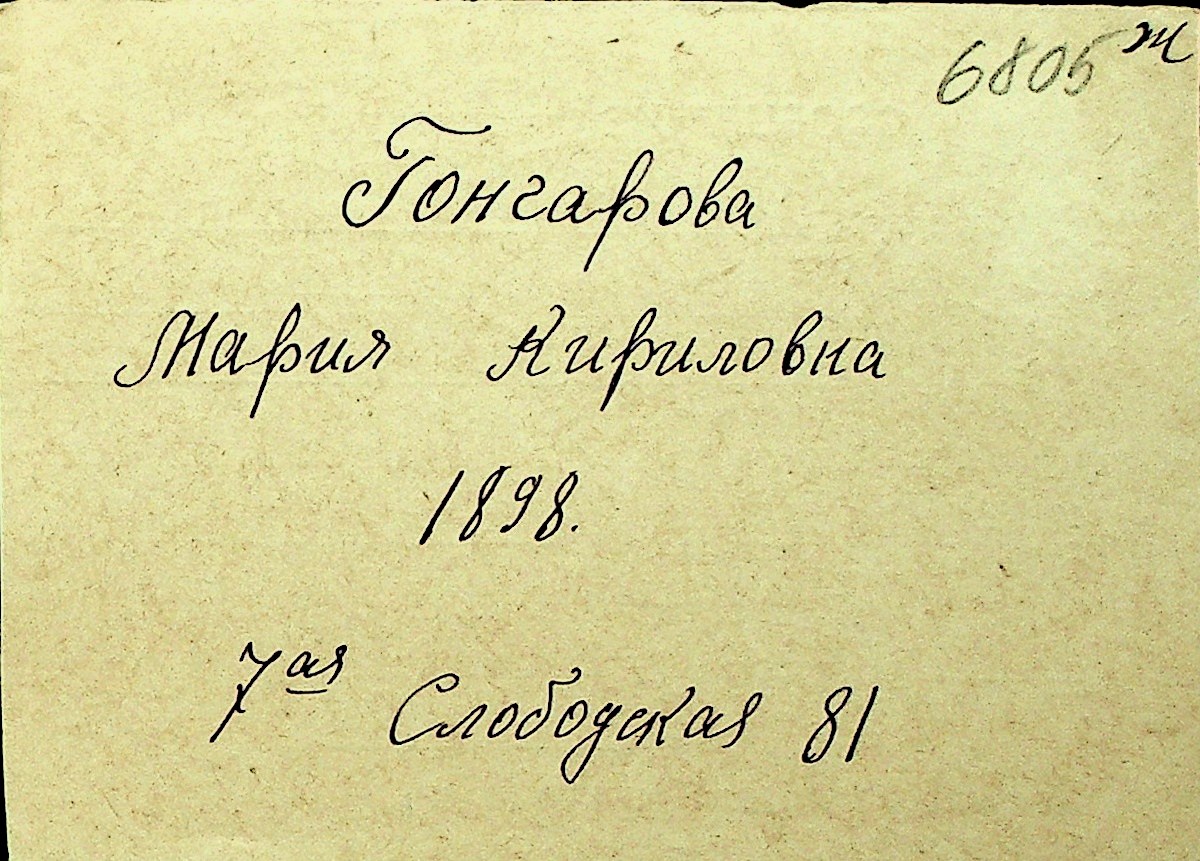 6805 ж
Гончарова
Мария Кириловна
1898.
7ая Слободская 81